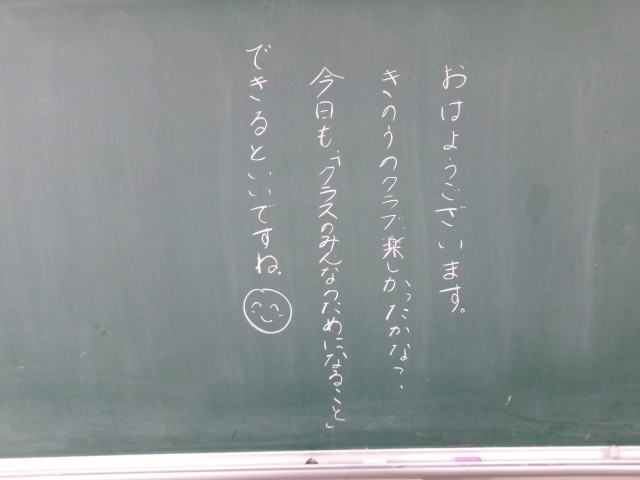 おはようございます。
きのうのクラブ、楽しかったかな?
今日も、「クラスのみんなのためになること」
できるといいですね。